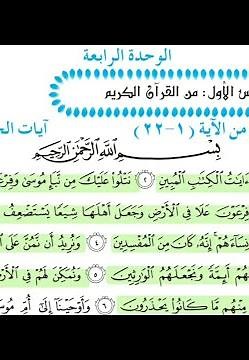 الوحدة الرابعة
س الأول: من القرآن الكريم
من الآية (١-٢٢) آيات الح
بِسْمِ ٱللَّهِ ٱلرَّحْمَٰنِ ٱلرَّحِيمِ
ءَايَٰتُ ٱلْكِتَٰبِ ٱلْمُبِينِ ٢ نَتْلُوا۟ عَلَيْكَ مِن نَّبَإِ مُوسَىٰ وَفِرْعَ
فِرْعَوْنَ عَلَا فِي ٱلْأَرْضِ وَجَعَلَ أَهْلَهَا شِيَعًا يَسْتَضْعِفُ
نِسَآءَهُمْ إِنَّهُۥ كَانَ مِنَ ٱلْمُفْسِدِينَ ٤ وَنُرِيدُ أَن نَّمُنَّ عَلَى
هُمْ أَئِمَّةً وَنَجْعَلَهُمُ ٱلْوَٰرِثِينَ ٥ وَنُمَكِّنَ لَهُمْ فِي ٱلْأَرْ
مِنْهُم مَّا كَانُوا۟ يَحْذَرُونَ ٦ وَأَوْحَيْنَآ إِلَىٰٓ أُمِّ مُوسَ